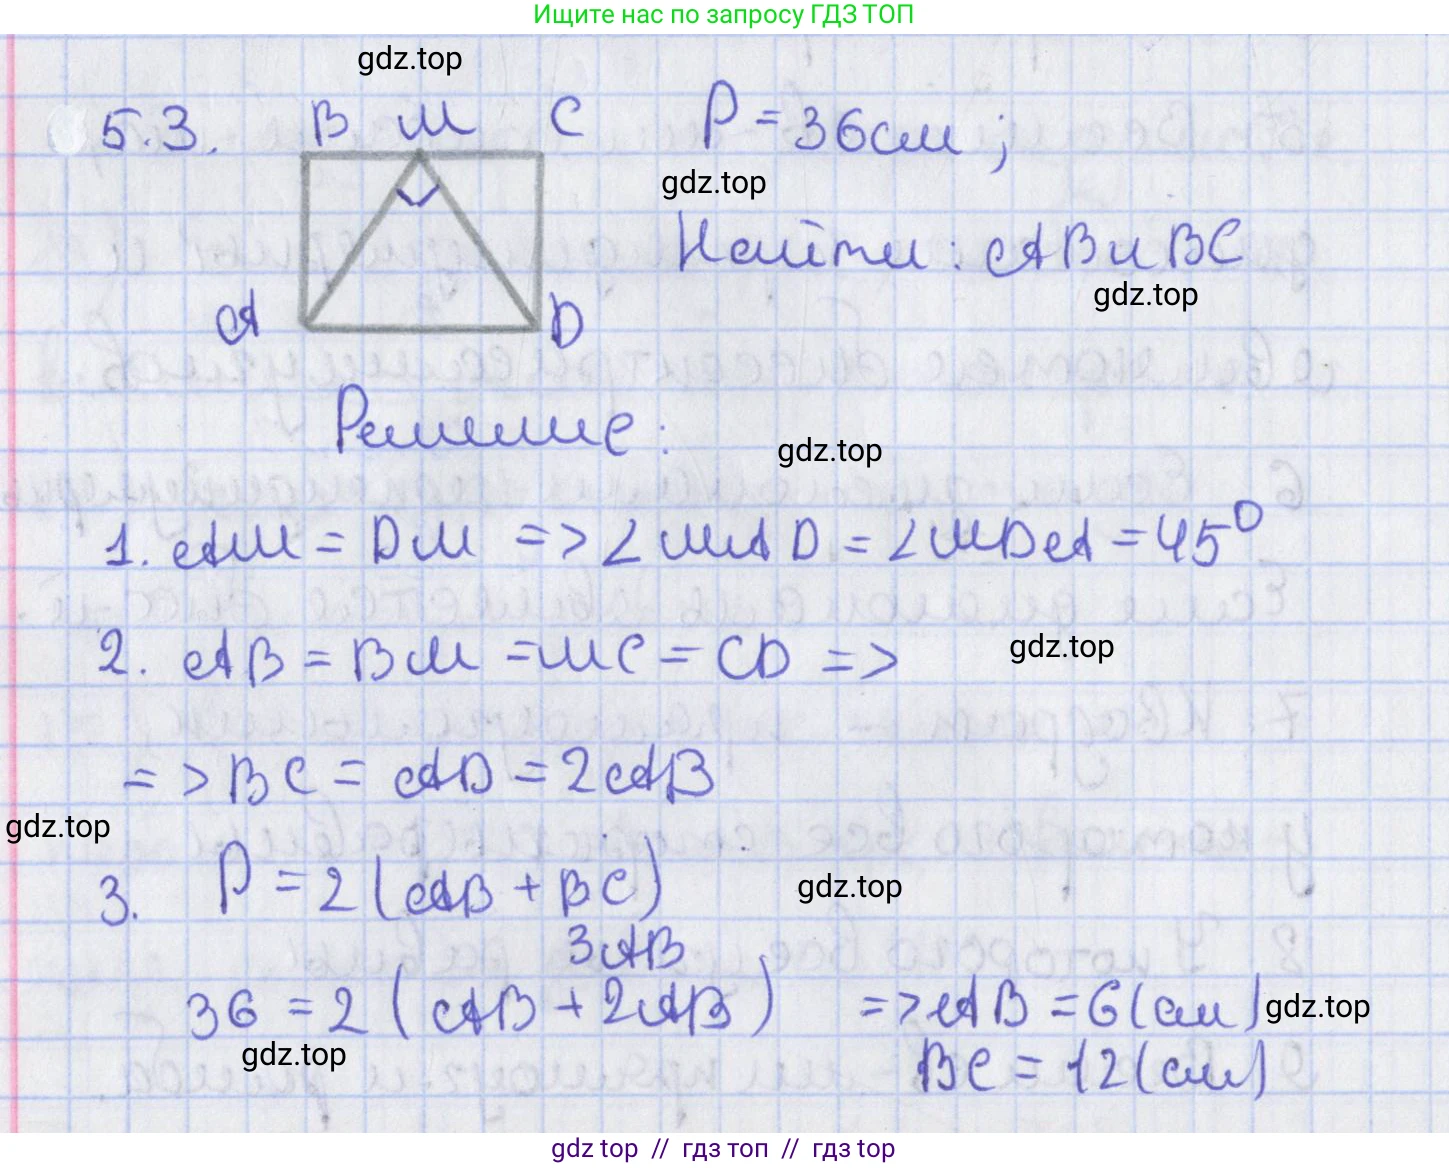 Ищите нас по запросу ГДЗ ТОП
gdz.top
5.3. B M C P = 36см;
gdz.top
Найти: AB и BC
gdz.top
A D
Решение:
gdz.top
1. AM = DM => ∠MAD = ∠MDA = 45°
2. AB = BM = MC = CD =>
gdz.top
=> BC = AD = 2AB
gdz.top
3. P = 2(AB + BC)
gdz.top
3AB
36 = 2(AB + 2AB) => AB = 6(см)
gdz.top
gdz.top
BC = 12(см)
gdz top // гдз топ // гдз top